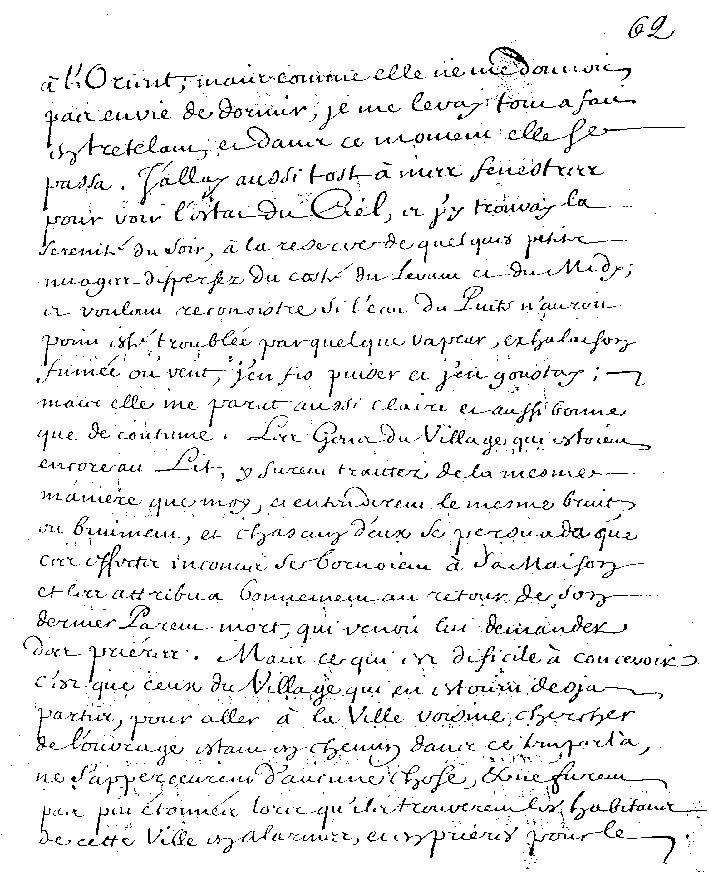 62
à l'Orient, mais comme elle ne me donnoit
pas envie de dormir, je me levay tout a fait
en tretelant, et dans ce moment elle se
passa. J'allay aussi tost à mes fenestres
pour voir l'estat du Ciel, et j'y trouvay la
serenité du soir, à la reserve de quelques petits
nuages dispersez du costé du Levant et du Midy;
et voulant reconoistre si l'eau du Puits n'auroit
point esté troublée par quelque vapeur, exhalaison
fumée ou vent, j'en fis puiser et j'en goustay;
mais elle me parut aussi claire et aussi bonne
que de coutume. Les Gens du Village qui estoient
encore au Lit, y furent traittez de la mesme
maniere que moy, et entendirent le mesme bruit
ou bruiment, et chascun d'eux se persuada que
ces effets inconnus se bornoient à sa Maison
et les attribua bonnement au retour de son
dernier Parent mort, qui venoit lui demander
des priéres. Mais ce qui est dificile à concevoir
c'est que ceux du Village qui en estoient desja
partis, pour aller à la Ville voisine chercher
de l'ouvrage estant en chemin dans ce temps la,
ne s'apperceurent d'aucune chose, & ne furent
pas peu étonnés lors qu'ils trouverent les habitans
de cette Ville en alarmes, et en priéres pour le